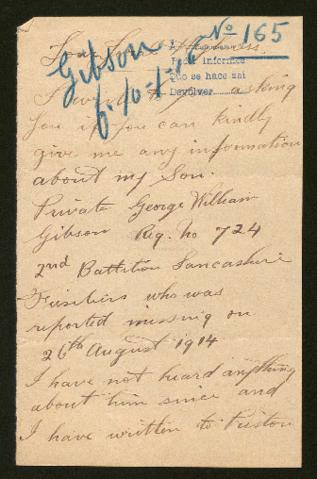 Gibson Nº 165
6-10-1-16
informes
que se hace mi
Devolver
I asking
you if you can kindly
give me any information
about my Son.
Private George William
Gibson Reg. No 724
2nd Battalion Lancashire
Fusiliers who was
reported missing on
26th August 1914
I have not heard anything
about him since and
I have written to